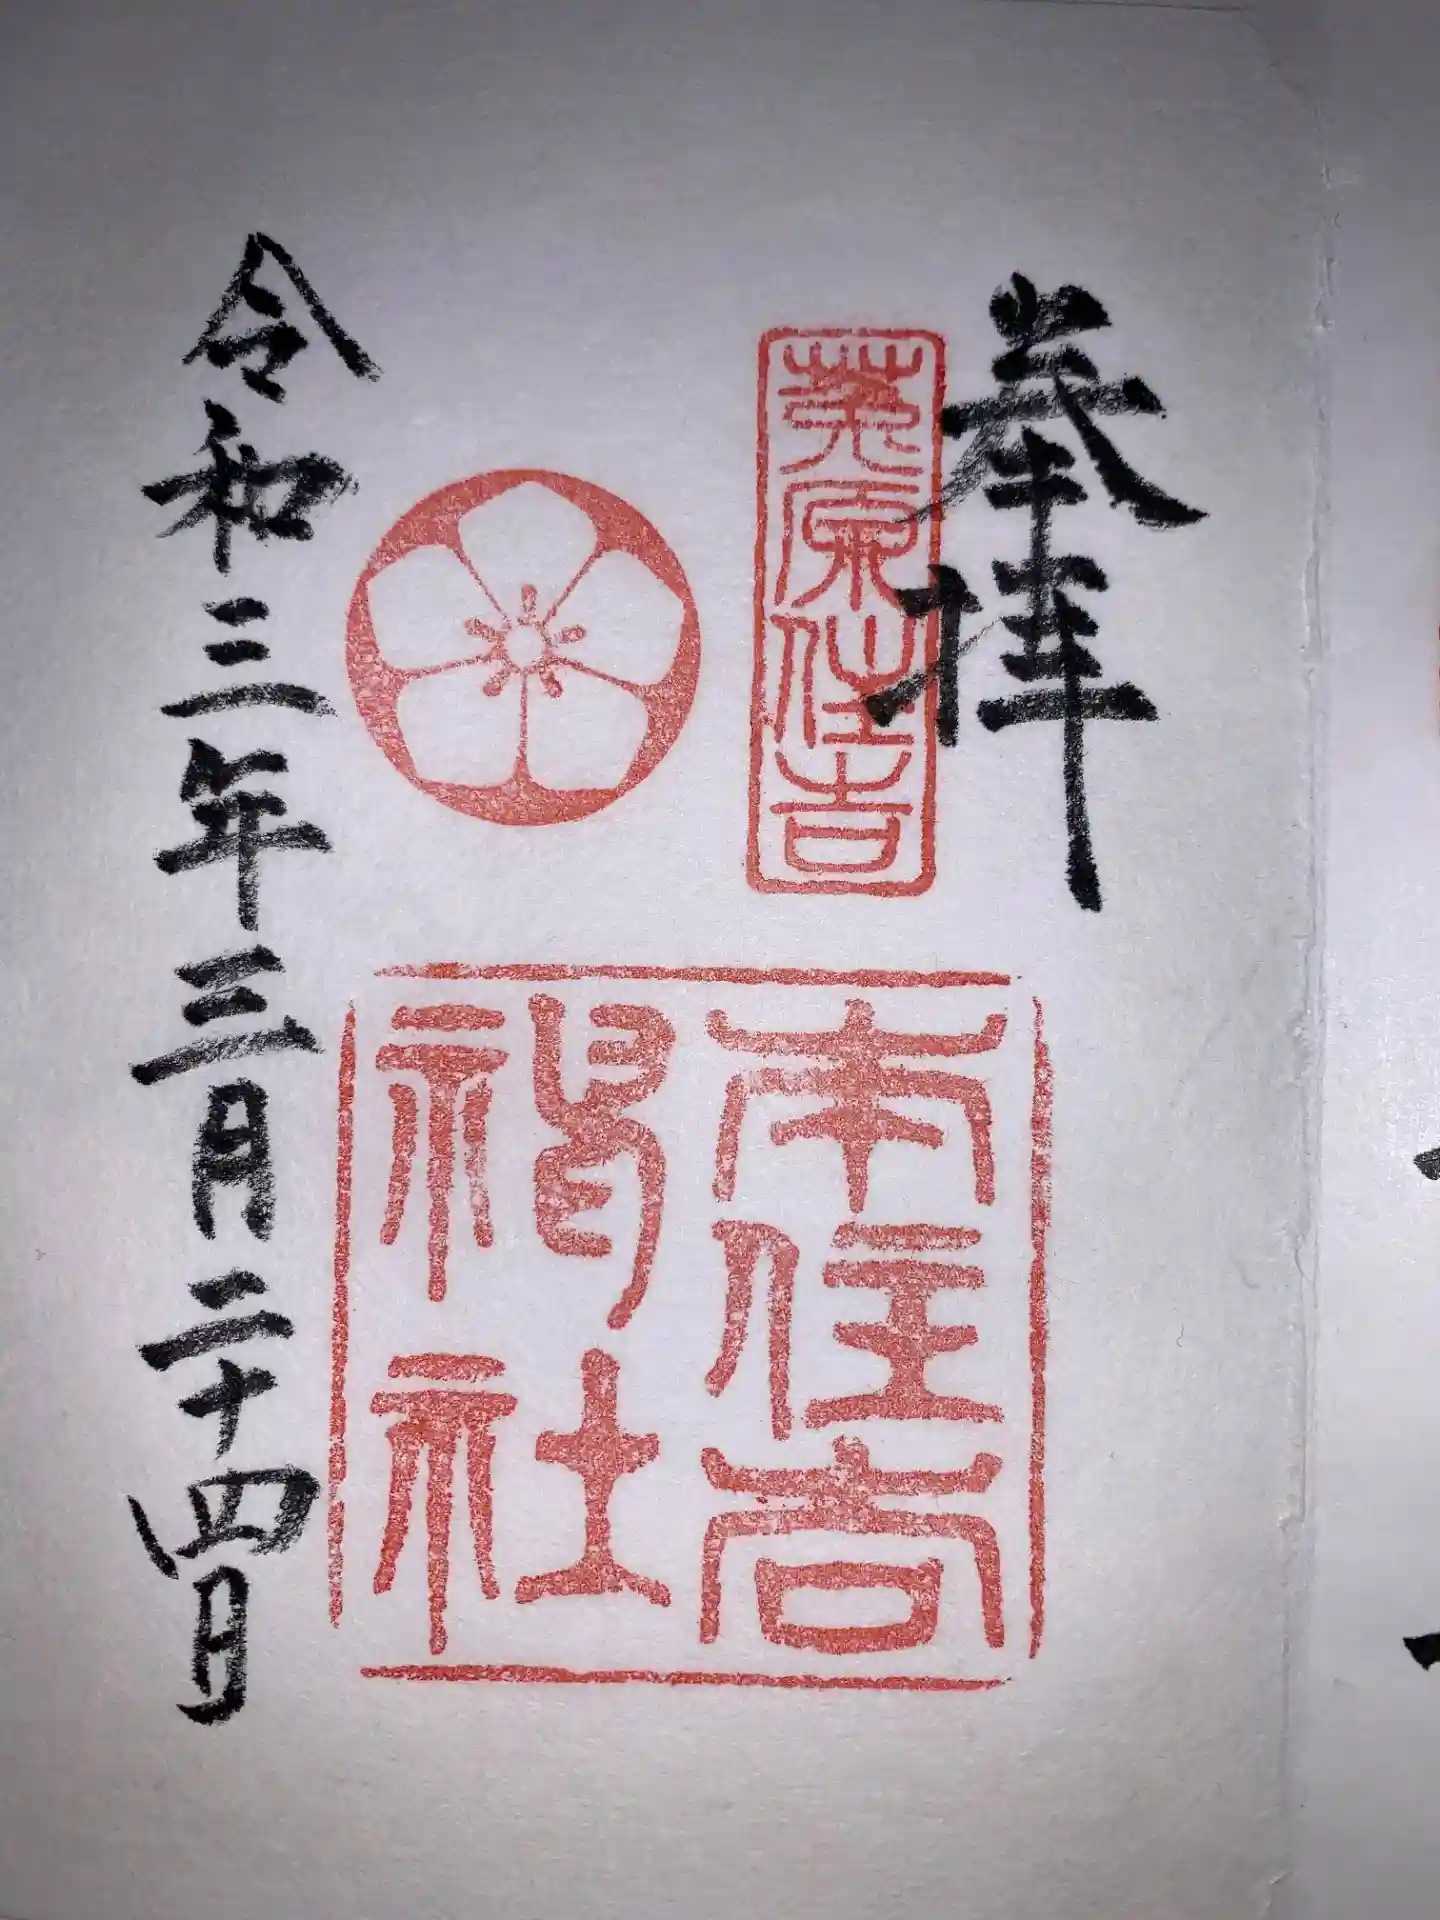 奉拝
菟原住吉
本住吉
神社
令和三年三月二十四日